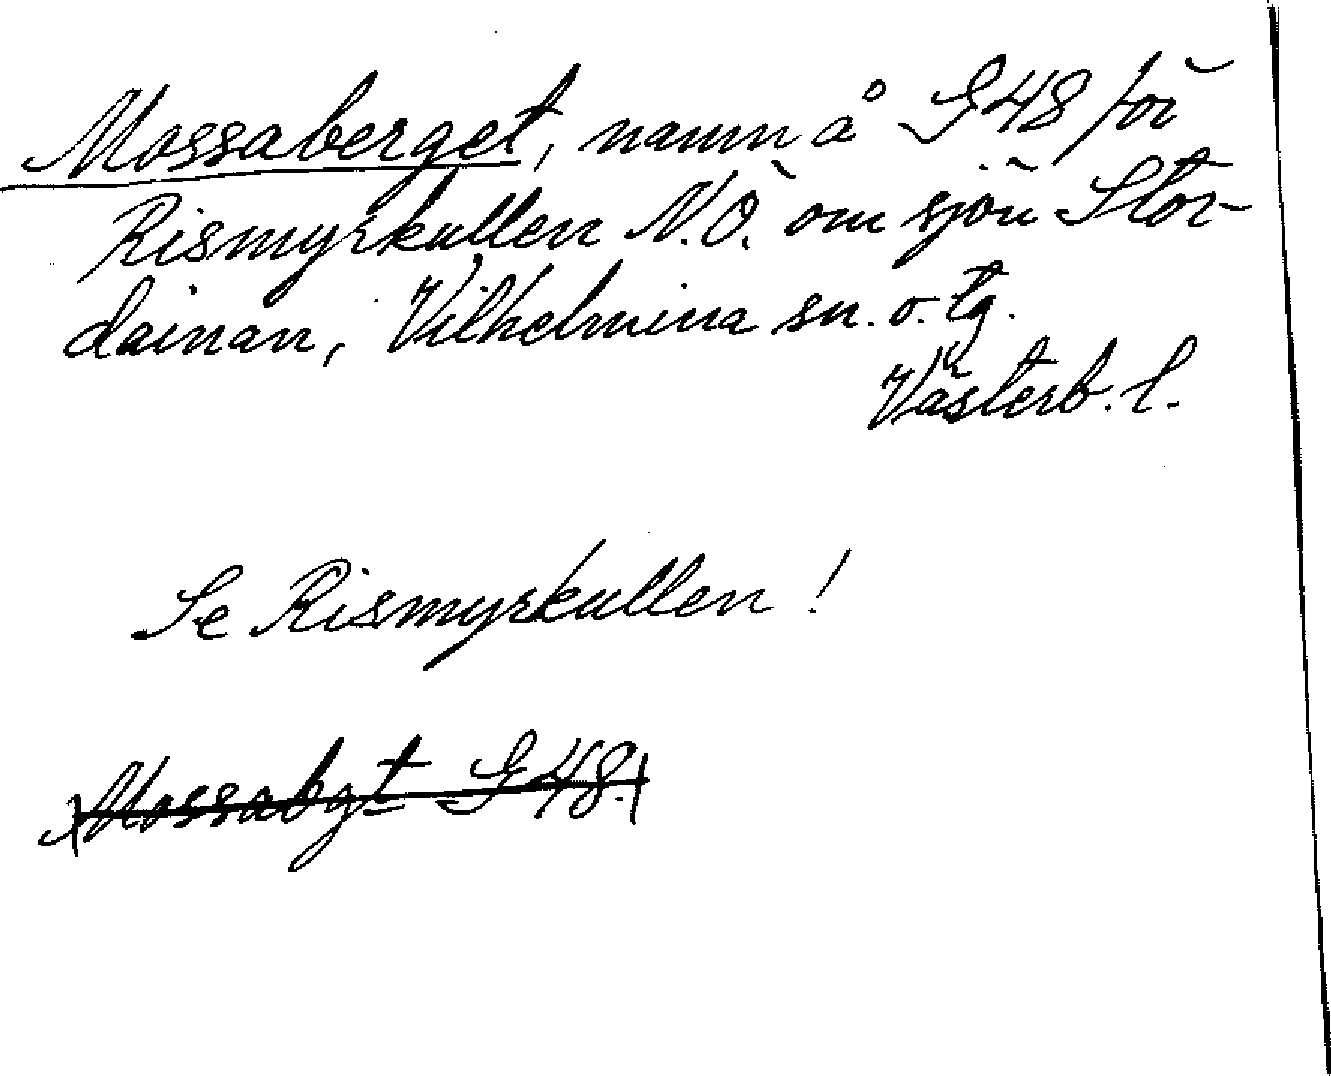 Mossaberget, namn å G48 för
Rismyrkullen N.Ö. om sjön Stor-
dainan, Vilhelmina sn. o. tg.
Västerb. l.
Se Rismyrkullen!
Mossabgt G48.